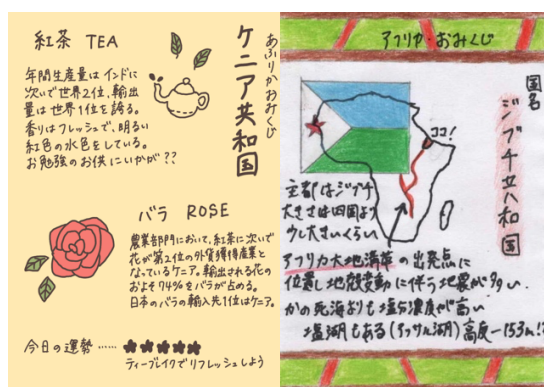 あふりかおみくじ
ケニア共和国
紅茶 TEA
年間生産量はインドに
次いで世界2位、輸出
量は世界1位を誇る。
香りはフレッシュで、明るい
紅色の水色をしている。
お勉強のお供にいかが??
バラ ROSE
農業部門において、紅茶に次いで
花が第2位の外貨獲得産業と
なっているケニア。輸出される花の
およそ74%をバラが占める。
日本のバラの輸入先1位はケニア。
今日の運勢……
ティーブレイクでリフレッシュしよう
アフリカ・おみくじ
国名
ジブチ共和国
ココ!
主都はジブチ
大きさは四国より
少し大きいくらい
アフリカ大地溝帯の出発点に
位置し地殻変動に伴う地震が多い.
かの死海よりも塩分濃度が高い
塩湖もある(アッサル湖)高度-153m!?